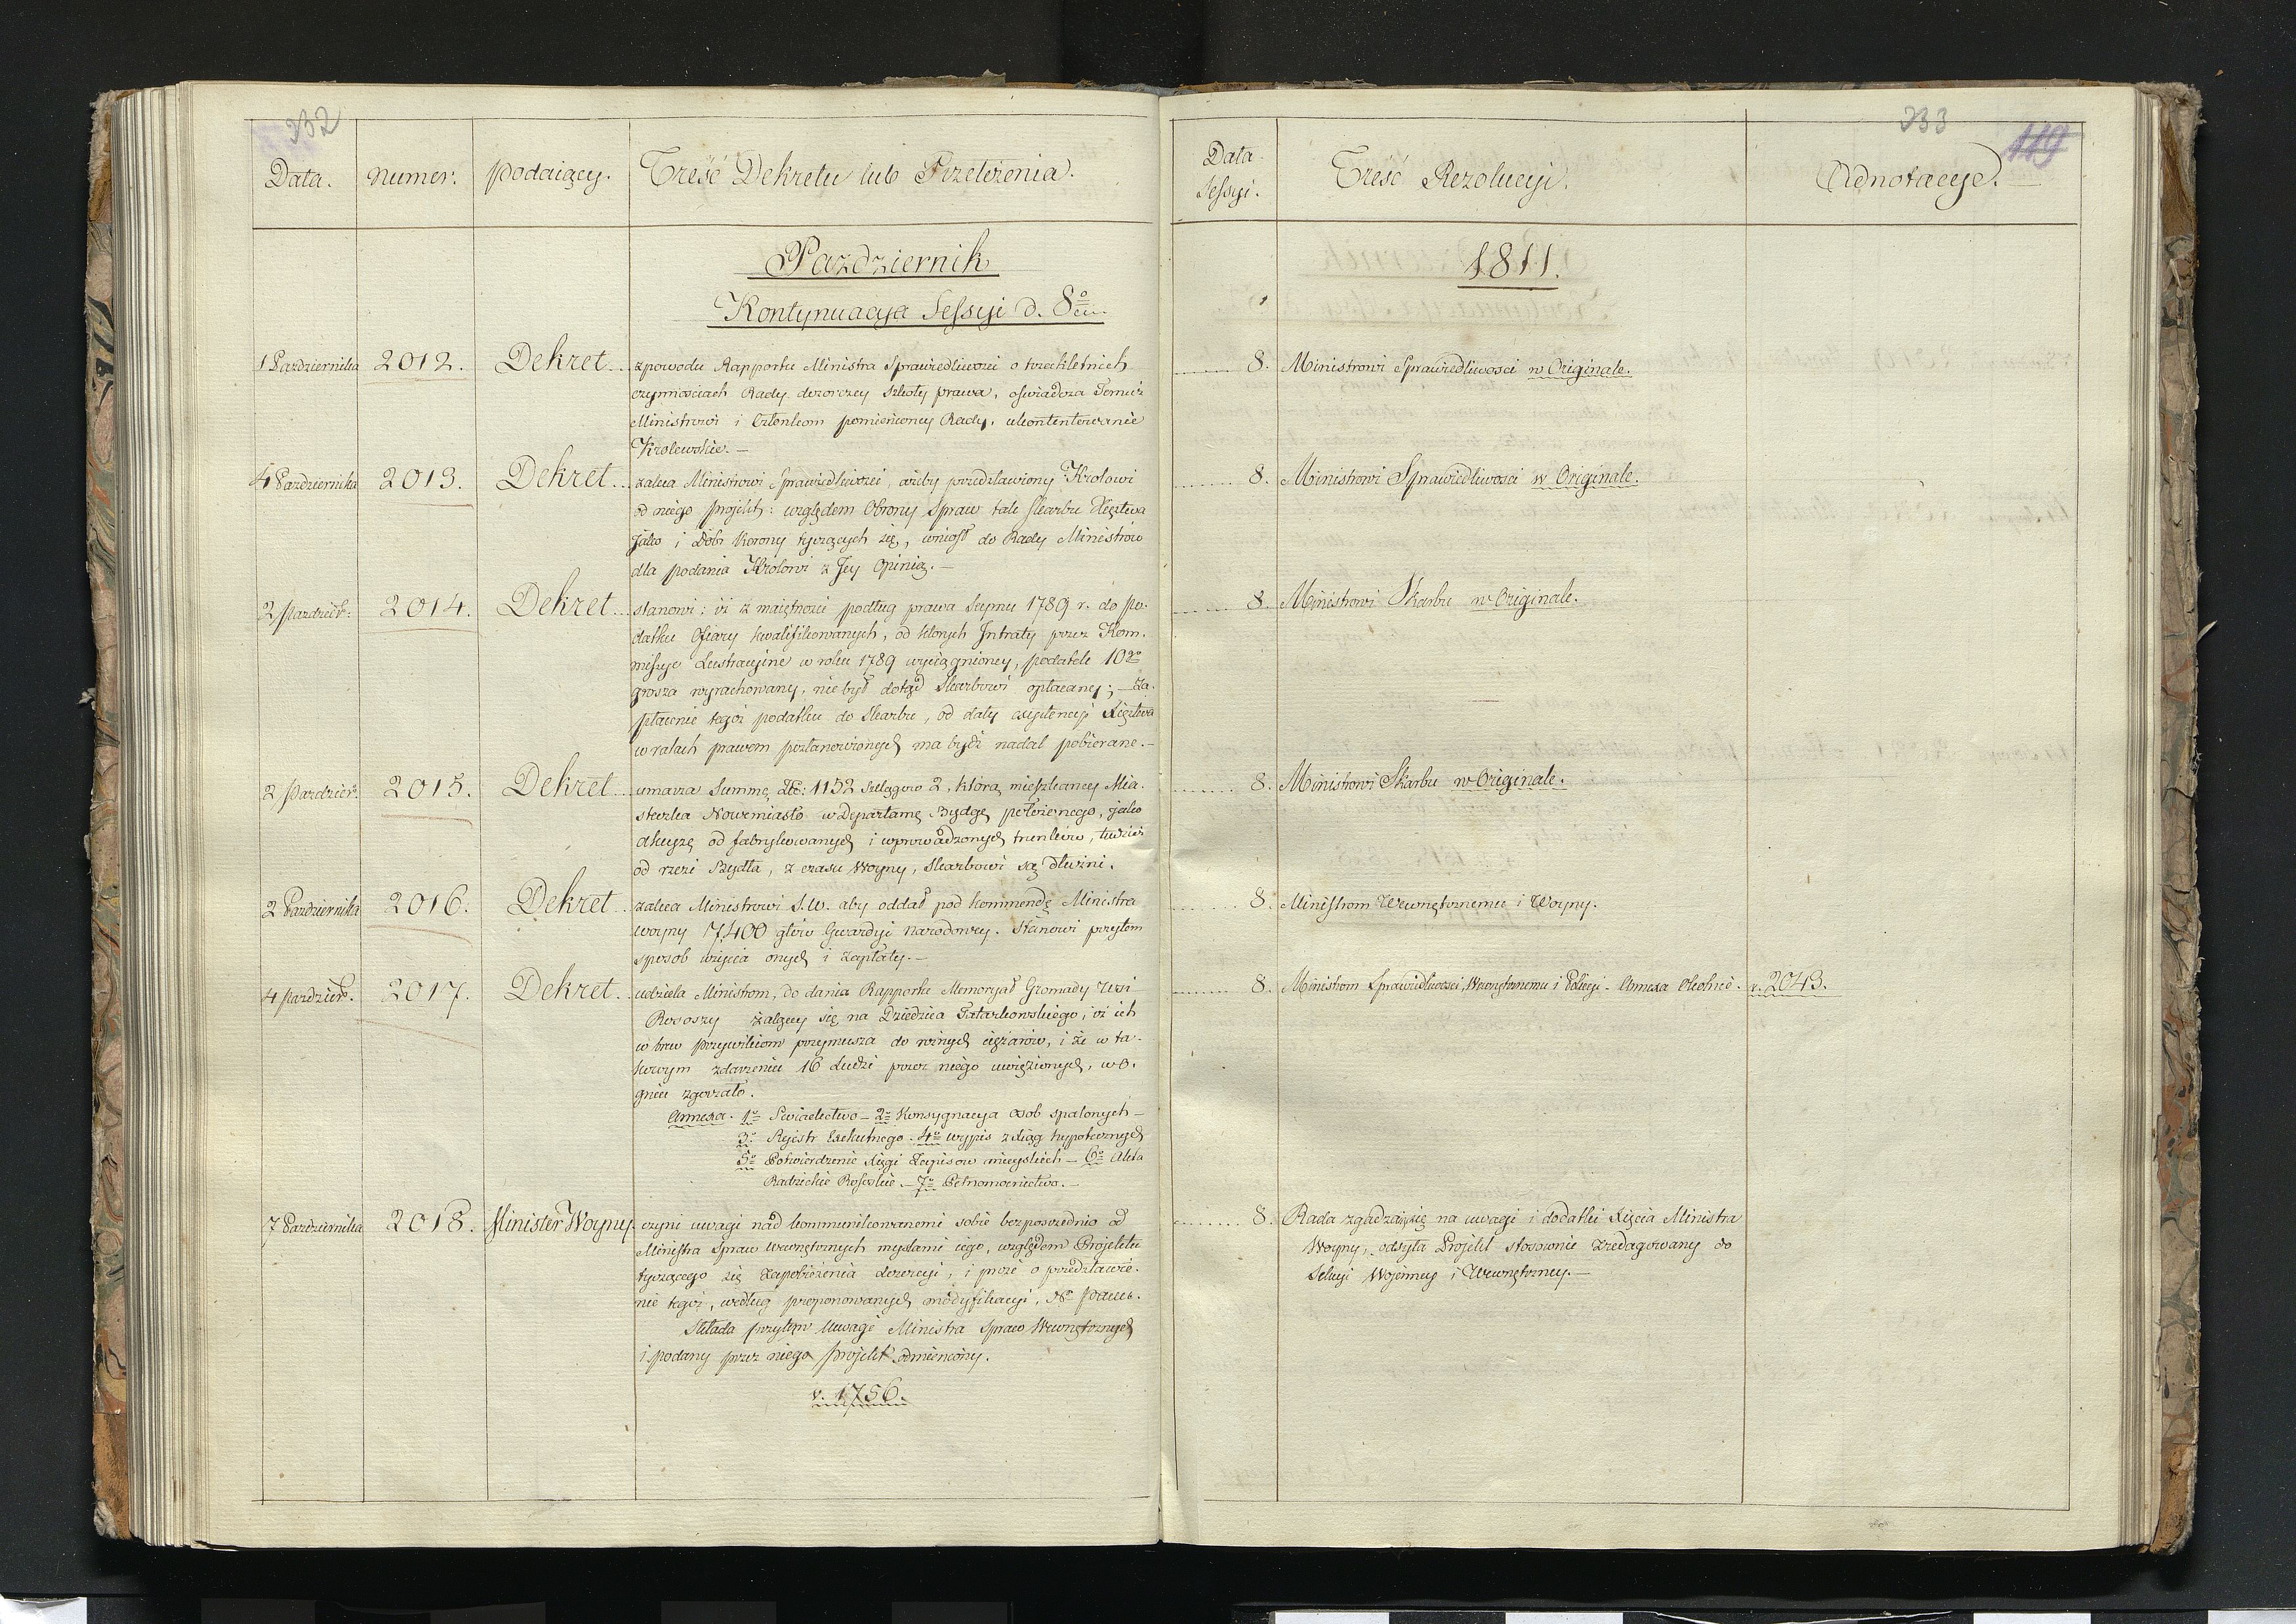 232
Data.
Numer.
Podaiący.
Treść Dekretu lub Przełożenia.
Pazdziernik
Kontynuacya Sessyi d. 8º
1 Pazdziernika
2012.
Dekret
z powodu Rapportu Ministra Sprawiedliwosci o trzechletnich
czynnościach Rady dozorczey szkoły prawa, oświadcza Temuż
Ministrowi i Członkom pomienioney Rady, ukontentowanie
Krolewskie. —
4 Pazdziernika
2013.
Dekret
zaleca Ministrowi Sprawiedliwosci, ażeby przedstawiony Krolowi
od niego projekt: względem Obrony Spraw tak Skarbu Xięstwa
jako i Dóbr Korony tyczących się, wniosł do Rady Ministrów
dla podania Krolowi z Jey Opinią. —
2 Pazdzier:
2014.
Dekret
stanowi: iż z maiętności podług prawa Seymu 1789 r. do po-
datku Ofiary kwalifikowanych, od ktorych Intraty przez Kom-
missye Lustracyine w roku 1789 wyciągnioney, podatek 10go
grosza wyrachowany, nie był dotąd Skarbowi opłacany; — za-
płacenie tegoż podatku do Skarbu, od daty exystencyi Xięstwa
w ratach prawem postanowionych ma bydź nadal pobierane. —
2 Pazdzier.
2015.
Dekret
umarza Summę Zł: 1152 Szelągow 2, którą mieszkańcy Mia-
steczka Nowemiasto w Departamę Bydgę położonego, jako
akcyzę od fabrykowanych i wprowadzonych trunków, tudzież
od rzezi Bydła, z czasu Woyny, Skarbowi są dłużni.
2 Pazdziernika
2016.
Dekret
zaleca Ministrowi S.W. aby oddał pod kommendę Ministra
woyny 7,400 głów Gwardyi Narodowey. Stanowi przytem
sposob użycia onych i zapłaty. —
4 Pazdzier.
2017.
Dekret
udziela Ministrom, do dania Rapportu Memoryał Gromady Wsi
Rososzy żalącey się na Dziedzica Tatarkowskiego, iż ich
w brew przywileiom przymusza do rożnych ciężarów, i że w ta-
kowym zdarzeniu 16 Ludzi przez niego uwięzionych, w o-
gniu zgorzało.
Annexa. 1º Swiadectwo — 2º Konsygnacya Osob spalonych —
3º Rejestr Exekutnego. 4º wypis z Xiąg hypotecznych
5º Potwierdzenie Xięgi Zapisow mieyskich — 6º Akta
Radzickie Rososkie. — 7º Pełnomocnictwo. —
7 Pazdziernika
2018.
Minister Woyny
czyni uwagi nad kommunikowanemi sobie bezposrednio od
Ministra Spraw wewnętrznych myslami iego, względem Projektu
tyczącego się zapobieżenia dezercyi, i prosi o przedstawie-
nie tegoż, według proponowanych modyfikacyi, Nº Panu.
Składa przytem Uwagi Ministra Spraw Wewnętrznych
i podany przez niego projekt odmieniony.
v. 1756.
233
119
Data
Sessyi.
Treść Rezolucyi.
Adnotacye. —
1811.
8.
Ministrowi Sprawiedliwosci w Originale.
8.
Ministrowi Sprawiedliwosci w Originale.
8.
Ministrowi Skarbu w Originale.
8.
Ministrowi Skarbu w Originale.
8.
Ministrom Wewnętrznemu i Woyny.
8.
Ministrom Sprawiedliwosci, Wewnętrznemu i Policyi.
v. 2043.
8.
Rada zgadzaiąc się na uwagi i dodatki Xięcia Ministra
Woyny, odsyła Projekt stosownie zredagowany do
Sekcyi Wojenney i Wewnętrzney. —